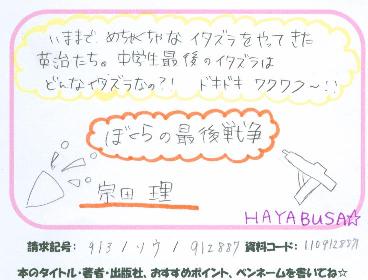 いままで、めちゃくちゃな イタズラをやってきた
英治たち。中学生最後のイタズラは
どんなイタズラなの?! ドキドキ ワクワク〜!!
ぼくらの最後戦争
宗田 理
HAYABUSA☆
請求記号: 913/ソウ/912887 資料コード: 110912887
本のタイトル・著者・出版社、おすすめポイント、ペンネームを書いてね☆